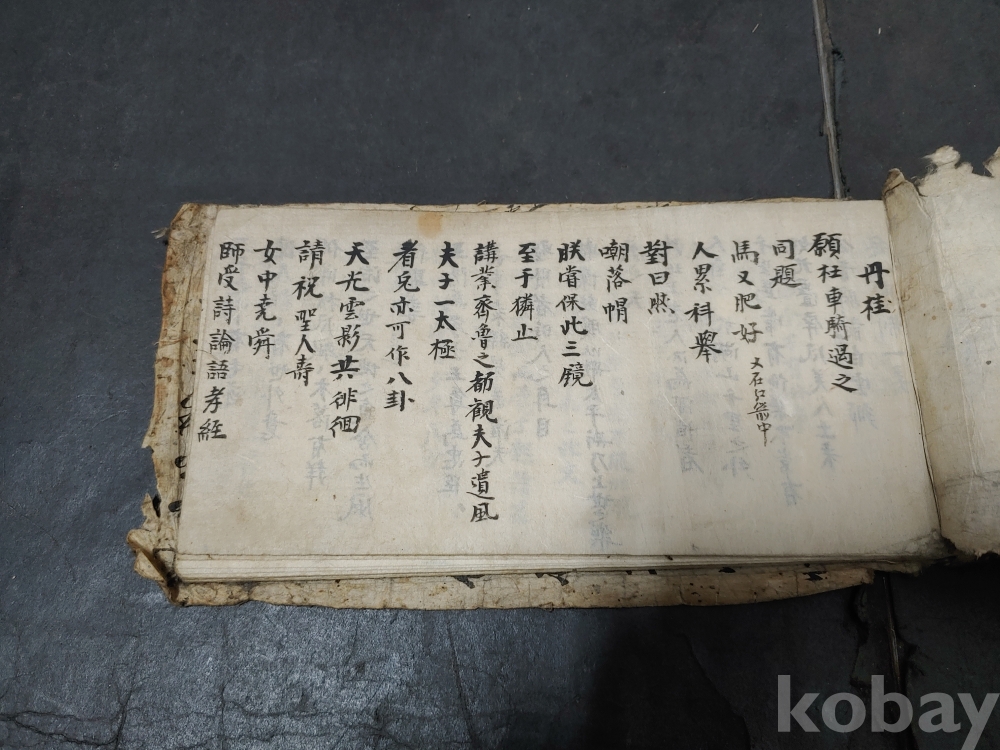 丹桂
願杜車騎過之
同題
馬又肥好
人累科舉
對曰然
嘲落帽
朕嘗保此三鏡
至于獜止
講業齊魯之都觀夫子遺風
夫子一太極
看兔亦可作八卦
天光雲影共徘徊
請祝聖人壽
女中堯舜
師受詩論語孝經
kobay